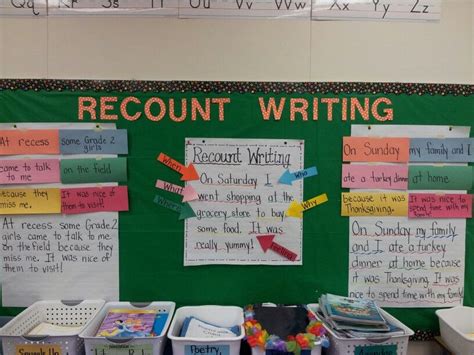 Qq Ss Uu Vv Ww
Xx Yy Z
RECOUNT WRITING
At recess some Grade 2 girls
came to talk to me on the field
because they miss me. It was nice of them to visit!
At recess some Grade 2
girls came to talk to me
on the field because they
miss me. It was nice of
them to visit!
Recount Writing
On Saturday I
went shopping at the
grocery store to buy
some food. It was
really yummy!
When
What
Where
Who
Why
On Sunday my family and I
ate a turkey dinner at home.
because it was Thanksgiving. It was nice to spend time with my family!
On Sunday my family
and I ate a turkey
dinner at home because
it was Thanksgiving. It was
nice to spend time with my family!
Snuggle Up
Poetry,